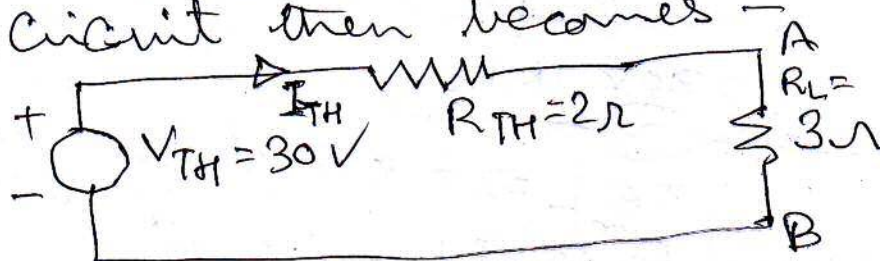 circuit then becomes -
A
I_TH
R_TH = 2Ω
R_L =
3Ω
+
V_TH = 30 V
-
B